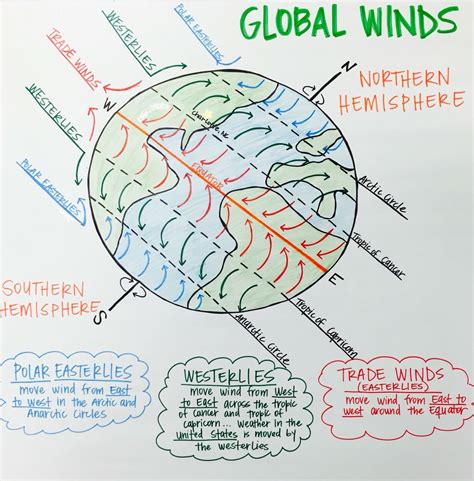 GLOBAL WINDS
POLAR EASTERLIES
WESTERLIES
TRADE WINDS
WESTERLIES
POLAR EASTERLIES
N
NORTHERN
HEMISPHERE
W
Charlotte, NC
EQUATOR
Arctic Circle
Tropic of Cancer
E
Tropic of Capricorn
Anarctic Circle
SOUTHERN
HEMISPHERE
S
POLAR EASTERLIES
move wind from East
to West in the Arctic and
Anarctic Circles
WESTERLIES
move wind from West
to East across the tropic
of cancer and tropic of
capricorn... weather in the
united States is moved by
the westerlies
TRADE WINDS
(EASTERLIES)
move wind from East to
west around the Equator